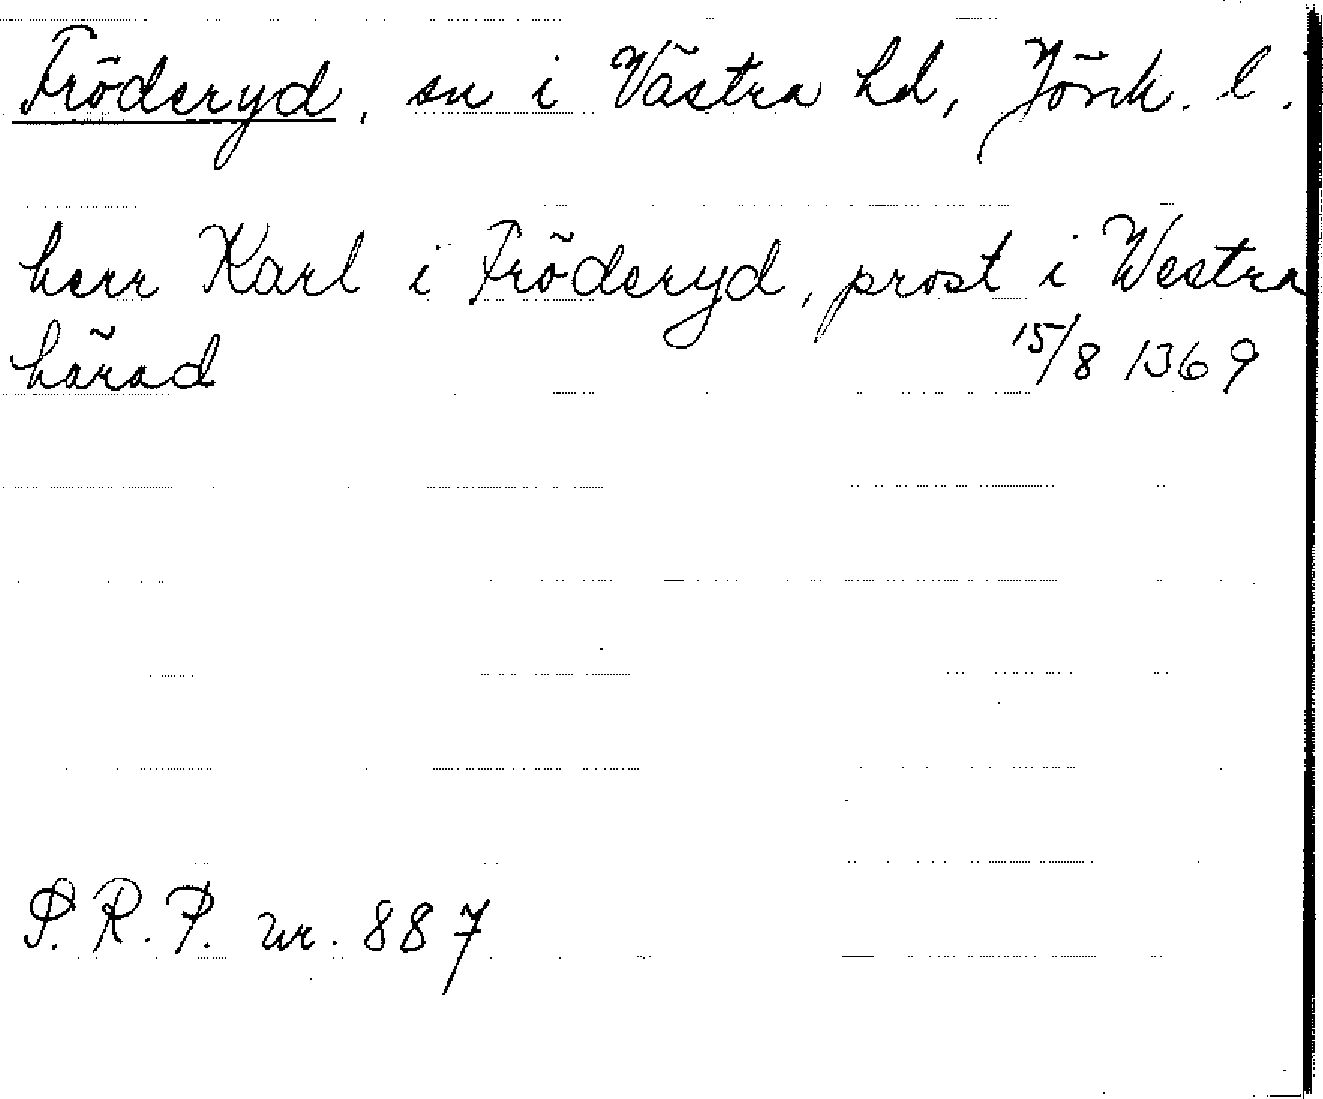 Fröderyd, sn i Västra hd, Jönk. l.
herr Karl i Fröderyd, prost i Westra
härad 15/8 1369
S.R.P. nr. 887